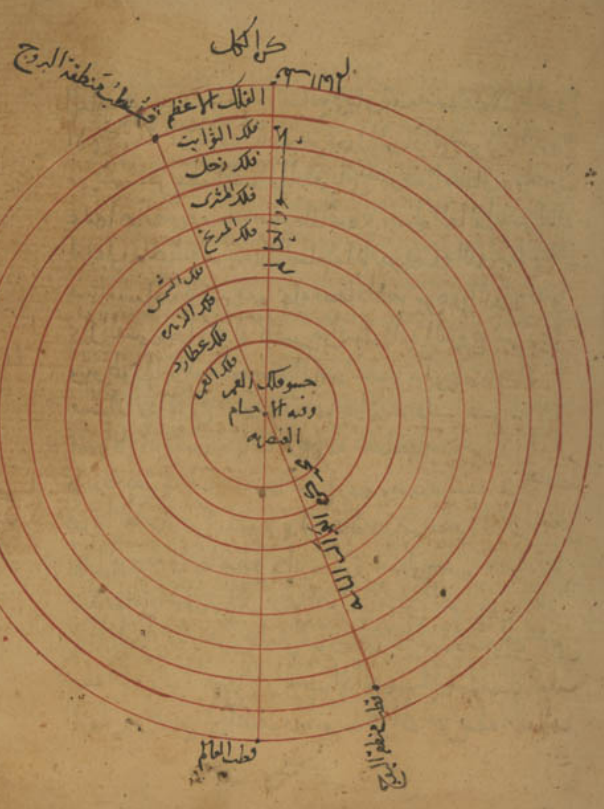 كرة الكل
قطب منطقة البروج
الفلك الاعظم
فلك الثوابت
فلك زحل
فلك المشتري
فلك المريخ
فلك الشمس
فلك الزهرة
فلك عطارد
فلك القمر
فلك القمر
وفيه الاجسام
العنصريه
قطب منطقة البروج
قطب العالم